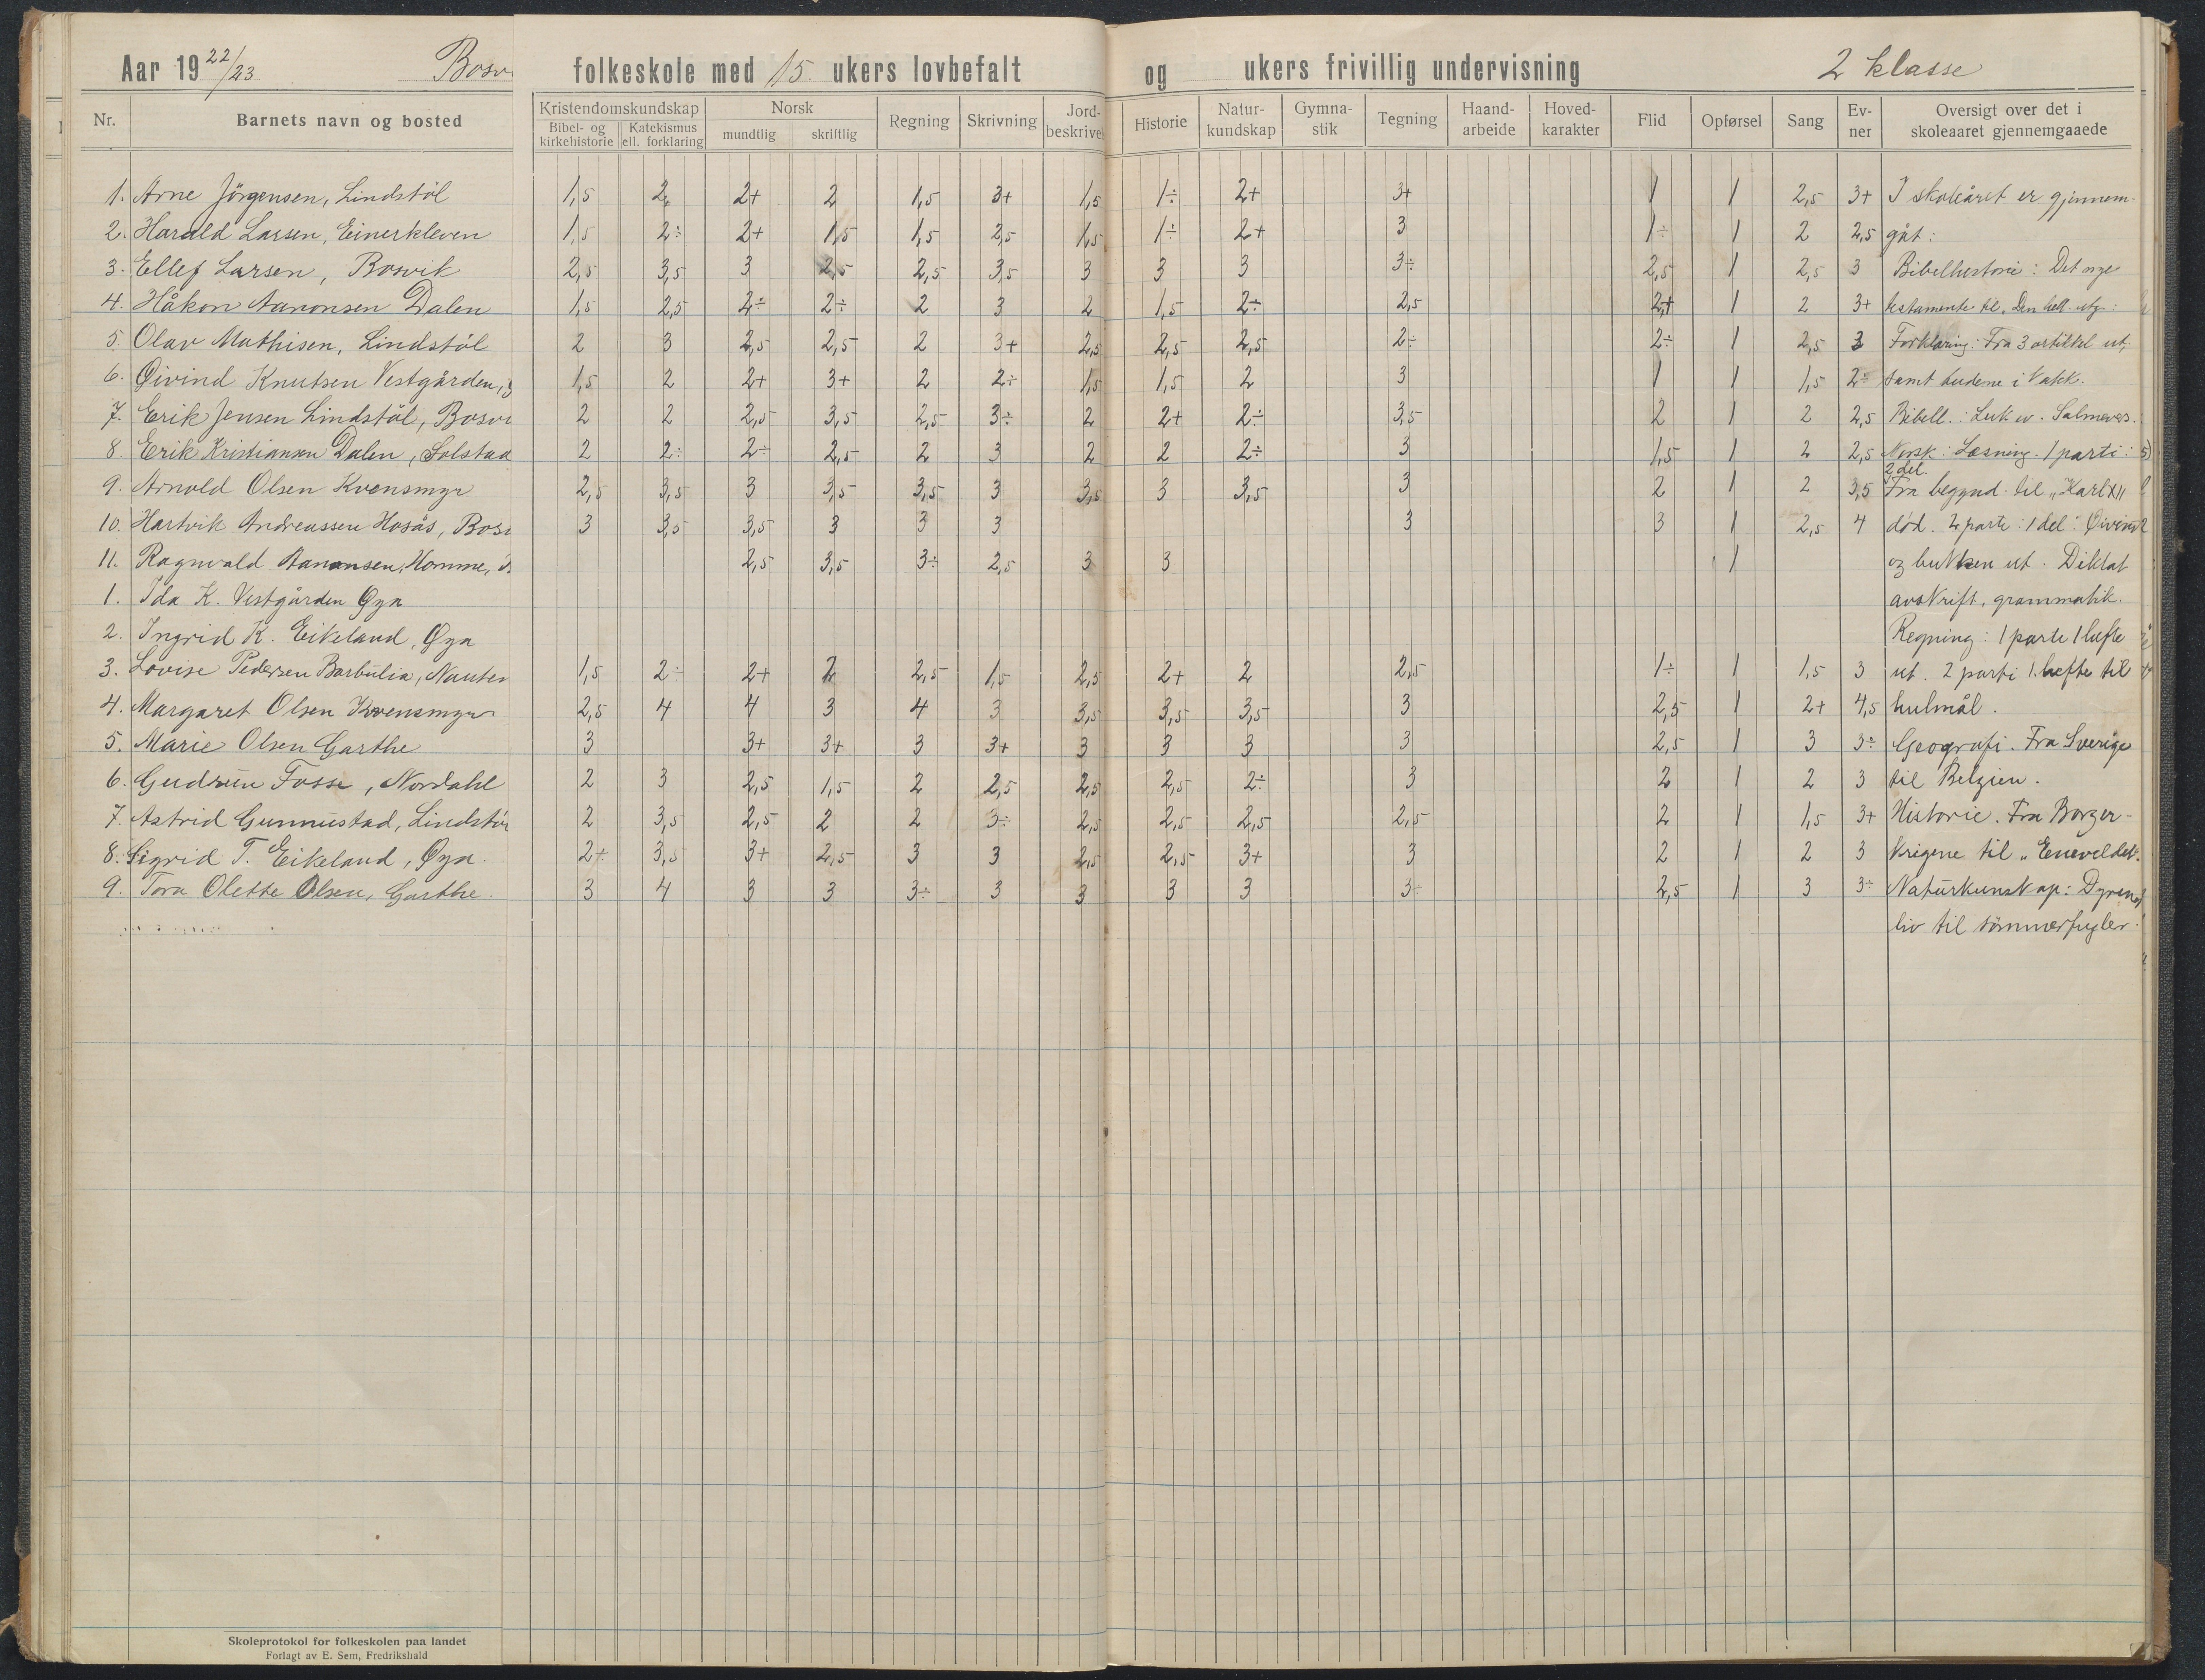 Aar 19 22/23 Bosv folkeskole med 15 ukers lovbefalt og ukers frivillig undervisning 2 klasse
Nr. Barnets navn og bosted Kristendomskundskap Bibel- og kirkehistorie Katekismus ell. forklaring Norsk mundtlig skriftlig Regning Skrivning Jord-beskrivel Historie Natur-kundskap Gymna-stik Tegning Haand-arbeide Hoved-karakter Flid Opførsel Sang Ev-ner Oversigt over det i skoleaaret gjennemgaaede
1. Arne Jörgensen, Lindstöl 1,5 2 2+ 2 1,5 3+ 1,5 1÷ 2+ 3+ 1 1 2,5 3+ I skoleåret er gjennem-
2. Harald Larsen, Einerkleven 1,5 2÷ 2+ 1,5 1,5 2,5 1,5 1÷ 2+ 3 1÷ 1 2 2,5 gåt:
3. Ellef Larsen, Bosvik 2,5 3,5 3 2,5 2,5 3,5 3 3 3 3÷ 2,5 1 2,5 3 Bibelhistorie: Det nye
4. Håkon Aanonsen Dalen 1,5 2,5 2÷ 2÷ 2 3 2 1,5 2÷ 2,5 2+ 1 2 3+ testamente til „Den hell. utg:
5. Olav Mathisen, Lindstöl 2 3 2,5 2,5 2 3+ 2,5 2,5 2,5 2÷ 2÷ 1 2,5 3 Forklaring: Fra 3 artikkel ut,
6. Øivind Knutsen Vestgården, 1,5 2 2+ 3+ 2 2÷ 1,5 1,5 2 3 1 1 1,5 2÷ samt budene i Katk.
7. Erik Jensen Lindstöl, Bosvi 2 2 2,5 3,5 2,5 3÷ 2 2+ 2÷ 3,5 2 1 2 2,5 Bibell.: Luk ev. Salmevers.
8. Erik Kristiansen Dalen, Solstad 2 2÷ 2÷ 2,5 2 3 2 2 2÷ 3 1,5 1 2 2,5 Norsk: Læsning. 1 parti:
2 del
9. Arnold Olsen Kvensmyr 2,5 3,5 3 3,5 3,5 3 3,5 3 3,5 3 2 1 2 3,5 Fra begynd. til „Karl XII
10. Hartvik Andreassen Hosås, Bos 3 3,5 3,5 3 3 3 3 3 1 2,5 4 død. 2 parti: 1 del: Øivind
11. Ragnvald Aanonsen, Homme, 2,5 3,5 3÷ 2,5 3 3 1 og bukken ut. Diktat
1. Ida K. Vestgården Øya avskrift, grammatik.
2. Ingrid K. Eikeland, Øya Regning: 1 parti 1 hefte
3. Lovise Pedersen Barbulia, Nauten 1,5 2÷ 2+ 2 2,5 1,5 2,5 2+ 2 2,5 1÷ 1 1,5 3 ut. 2 parti 1. hefte til
4. Margaret Olsen Kvensmyr 2,5 4 4 3 4 3 3,5 3,5 3,5 3 2,5 1 2+ 4,5 hulmål.
5. Marie Olsen Garthe 3 3+ 3+ 3 3+ 3 3 3 3 2,5 1 3 3÷ Geografi. Fra Sverige
6. Gudrun Fosse, Nordahl 2 3 2,5 1,5 2 2,5 2,5 2,5 2÷ 3 2 1 2 3 til Belgien.
7. Astrid Gunnustad, Lindstöl 2 3,5 2,5 2 2 3÷ 2,5 2,5 2,5 2,5 2 1 1,5 3+ Historie. Fra Borger-
8. Sigrid T. Eikeland, Øya. 2+ 3,5 3+ 2,5 3 3 2,5 2,5 3+ 3 2 1 2 3 krigene til „Eneveldet.
9. Tora Olette Olsen, Garthe. 3 4 3 3 3÷ 3 3 3 3 3÷ 2,5 1 3 3÷ Naturkunskap: Dyrenes
liv til sommerfugler.
Skoleprotokol for folkeskolen paa landet
Forlagt av E. Sem, Fredrikshald